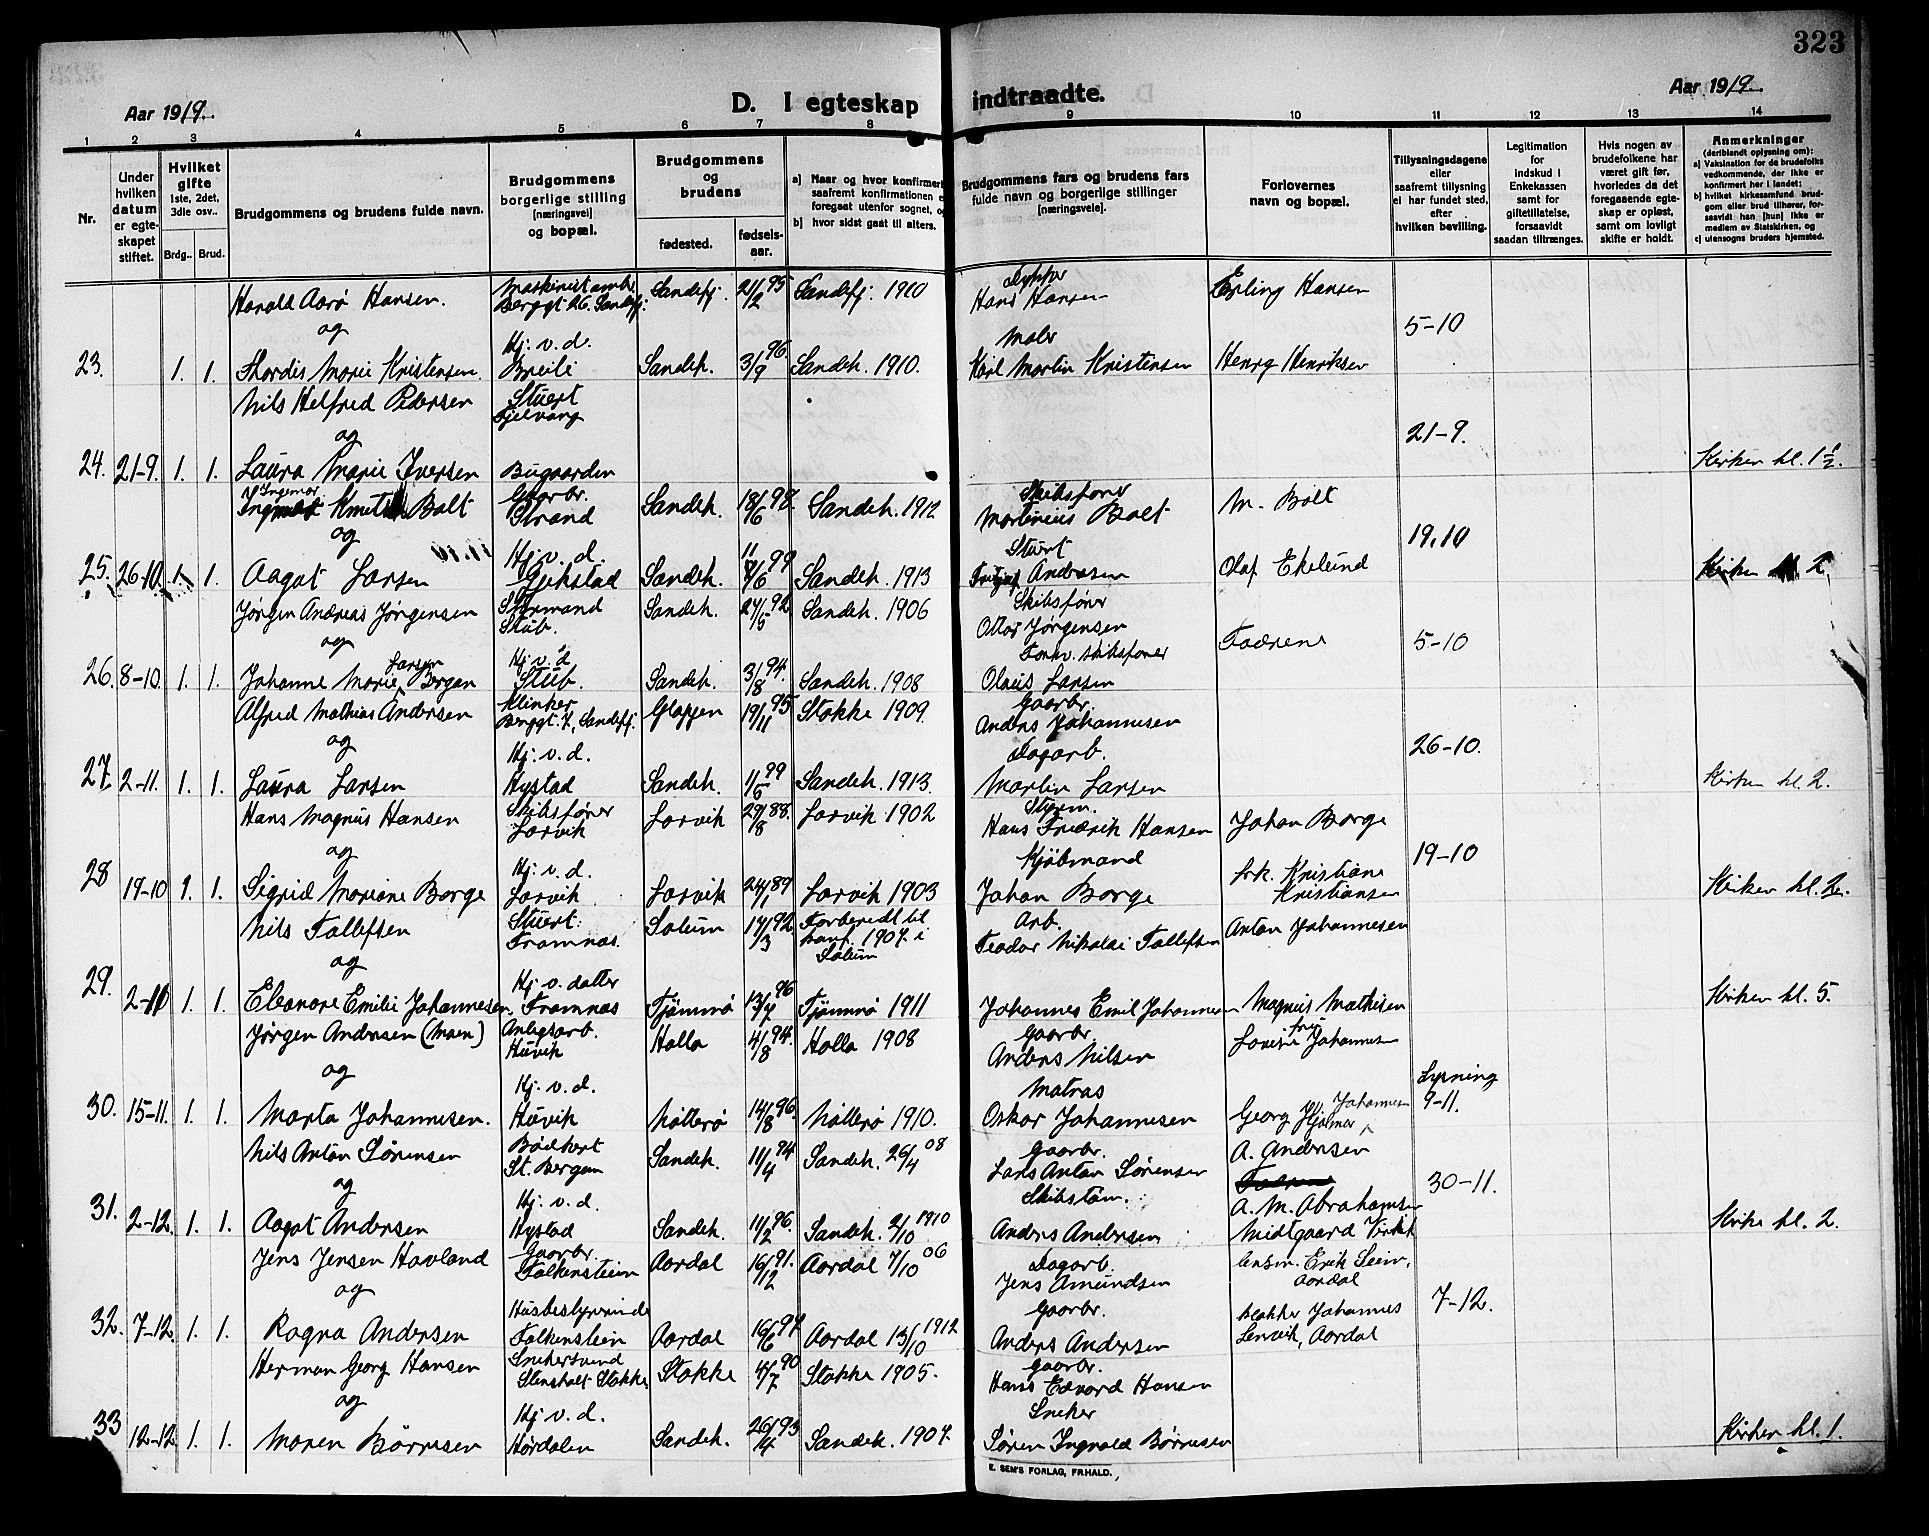 323
Aar 1919.
D. I egteskap indtraadte.
Aar 1919.
1 2 3 4 5 6 7 8 9 10 11 12 13 14
Nr.
Under hvilken datum er egte-skapet stiftet.
Hvilket gifte 1ste, 2det, 3die osv..
Brdg.. Brud.
Brudgommens og brudens fulde navn.
Brudgommens borgerlige stilling (næringsvei) og bopæl.
Brudgommens og brudens
fødested. fødsels-aar.
a) Naar og hvor konfirmert saafremt konfirmationen e foregaat utenfor sognet, og
b) hvor sidst gaat til alters.
Brudgommens fars og brudens fars fulde navn og borgerlige stillinger (næringsveie).
Forlovernes navn og bopæl.
Tillysningsdagene eller saafremt tillysning ei har fundet sted, efter hvilken bevilling.
Legitimation for indskud i Enkekassen samt for giftetillatelse, forsaavidt saadan tiltrænges.
Hvis nogen av brudefolkene har været gift før, hvorledes da det foregaaende egte-skap er opløst, samt om lovligt skifte er holdt.
Anmerkninger (deriblandt oplysning om):
a) Vaksination for de brudefolks vedkommende, der ikke er konfirmert her i landet;
b) hvilket kirkesamfund brud-gom eller brud tilhører, for-saavidt han [hun] ikke er medlem av Statskirken, og
c) utensogns bruders hjemsted.
Harald Aarø Hansen. Maskinist Berggt 26. Sandefj. Sandefj. 21/2 95 Sandefj. 1910 Hans Hansen Erling Hansen
og 5-10
23. 1. 1. Thordis Marie Kristensen. Hj. v. d. Breili Sandeh. 3/9 96. Sandeh. 1910. Maler Karl Martin Kristensen Henry Henriksen
Nils Helfred Pedersen Stuert Fjelvang
og 21-9.
24. 21-9. 1. 1. Laura Marie Iversen Bugaarden Kirken kl. 1 1/2.
Ingmar Knut Bolt Gaarbr. Strand Sandeh. 18/6 98. Sandeh. 1912 Skibsfører Martinius Bolt M. Bolt
og 19.10
25. 26-10. 1. 1. Aagot Larsen Hj. v. d. Gjekstad Sandeh. 99 Sandeh. 1913 Stuert Andresen Olaf Ekelund Kirken 2.
Jørgen Andreas Jørgensen Styrmand Stub. Sandeh. 27/5 92. Sandeh. 1906 Skibsfører Ottar Jørgensen
og Fædrene 5-10
26. 8-10. 1. 1. Johanne Marie Larsen Bergan Hj. v. d. Stub. Sandeh. 3/8 94. Sandeh. 1908 Forhv. skibsfører Olaus Larsen
Alfred Mathias Andersen Klinker Berggt. 7, Sandefj. Gloppen 19/11 95 Stokke 1909. Gaarbr. Anders Johannesen
og 26-10.
27. 2-11. 1. 1. Laura Larsen Hj. v. d. Hystad Sandeh. 1/6 99 Sandeh. 1913. Dagarb. Martin Larsen Kirken kl. 2.
Hans Magnus Hansen Skibsfører Larvik Larvik 29/8 88. Larvik 1902 Styrm. Hans Fredrik Hansen Johan Borge
og 19-10
28 19-10 1. 1. Sigrid Mariane Borge Hj. v. d. Larvik Larvik 24/1 89 Larvik 1903 Kjøbmand Johan Borge frk. Kristiane Kristiansen Kirken kl. 2.
Nils Tollefsen Stuert. Framnæs. Solum 17/3 92. Forberedt til konf. 1907. i Solum Arb. Teodor Nikolai Tollefsen Anton Johannesen
og
29. 2-11 1. 1. Eleonore Emilie Johannesen Hj. v. datter Framnæs Tjømmø 13/7 96 Tjømmø 1911 Johannes Emil Johannesen Magnus Mathisen Kirken kl. 5.
Jørgen Andersen (Moen) Anlegsarb. Huvik Holla 4/8 94. Holla 1908 Gaarbr. Anders Nilsen fru Lovise Johannesen
og Lysning 9-11.
30. 15-11. 1. 1. Marta Johannesen. Hj. v. d. Huvik Nøtterø 14/8 96. Nøtterø 1910. Matros Oskar Johannesen Georg Hjalmar Johannesen
Nils Anton Sørensen Bødkert St. Bergan Sandeh. 11/4 94 Sandeh. 26/4 08 Gaarbr. Lars Anton Sørensen A. Andersen
og 30-11.
31. 2-12. 1. 1. Aagot Andersen Hj. v. d. Hystad Sandeh. 11/2 96. Sandeh. 2/10 1910 Skibstøm. Anders Andersen A. M. Abrahamsen Midtgaard Kirke kl. 2.
Jens Jensen Hovland Gaarbr. Falkenstein Aardal 16/12 91. Aardal 7/10 06 Dagarb. Jens Amundsen Erik Aardal
og 7-12.
32. 7-12. 1. 1. Ragna Andersen Husbestyrerinde Falkenstein Aardal 16/6 97 Aardal 13/10 1912 Gaarbr. Anders Andersen Johannes Lervik, Aardal
Herman Georg Hansen Snekersvend Stensholt Stokke Stokke 4/7 90 Stokke 1905. Gaarbr. Hans Edvard Hansen
og
33 12-12. 1. 1. Maren Børresen Hj. v. d. Hørdalen Sandeh. 26/4 93 Sandeh. 1907. Sneker Søren Ingvald Børresen Kirken kl. 1.
E. SEM'S FORLAG, FR.HALD.